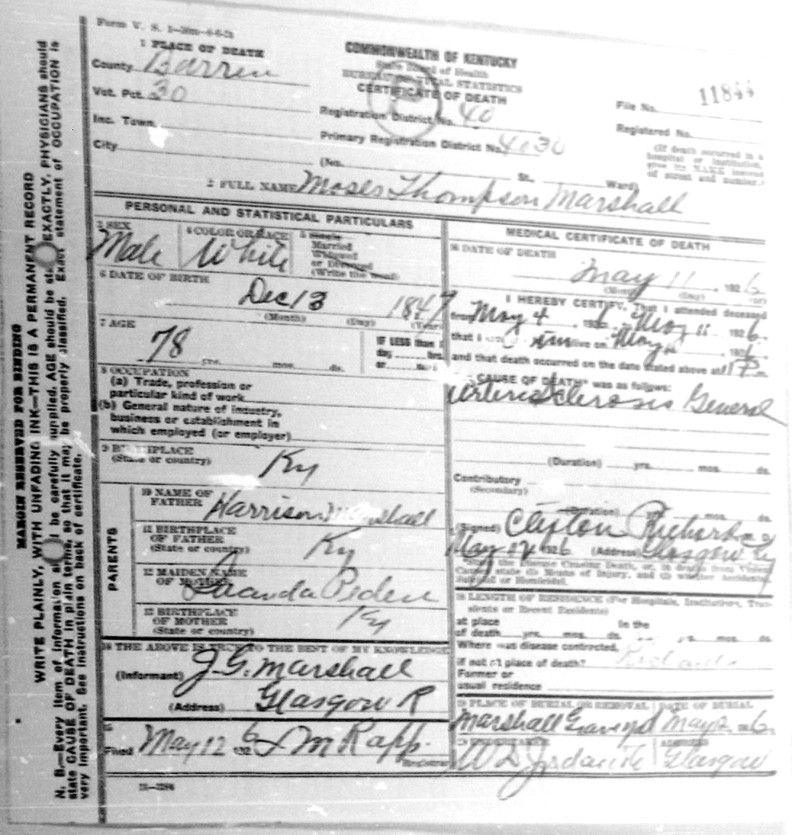 Form V. S. 1
COMMONWEALTH OF KENTUCKY
State Board of Health
BUREAU OF VITAL STATISTICS
CERTIFICATE OF DEATH
1 PLACE OF DEATH
County Barren
Vot. Pct. 30
Inc. Town
City
Registration District No. 40
Primary Registration District No. 4030
File No. 11844
Registered No.
(If death occurred in a hospital or institution, give its NAME instead of street and number.)
(No. St. Ward)
2 FULL NAME Moses Thompson Marshall
PERSONAL AND STATISTICAL PARTICULARS
3 SEX Male
4 COLOR OR RACE White
5 Single
Married
Widowed
or Divorced
(Write the word)
6 DATE OF BIRTH
Dec 13 1847
(Month) (Day) (Year)
7 AGE
78 yrs. mos. ds.
IF LESS than 1
day hrs.
or
8 OCCUPATION
(a) Trade, profession or
particular kind of work
(b) General nature of industry,
business or establishment in
which employed (or employer)
9 BIRTHPLACE
(State or country) Ky
PARENTS
10 NAME OF
FATHER Harrison Marshall
11 BIRTHPLACE
OF FATHER
(State or country) Ky
12 MAIDEN NAME
OF MOTHER Peden
13 BIRTHPLACE
OF MOTHER
(State or country) Ky
14 THE ABOVE IS TRUE TO THE BEST OF MY KNOWLEDGE
(Informant) J. G. Marshall
(Address) Glasgow R
15
Filed May 12 1926 M Rapp
Registrar
MEDICAL CERTIFICATE OF DEATH
16 DATE OF DEATH
May 11 1926
(Month) (Day)
I HEREBY CERTIFY, That I attended deceased
from May 4 1926 May 11 1926
that I alive on May 192
and that death occurred on the date stated above at P
CAUSE OF DEATH was as follows:
Arteriosclerosis General
(Duration) yrs. mos. ds.
Contributory
(Secondary)
(Duration) yrs. mos. ds.
(Signed) Clayton Richards
May 12 1926 (Address) Glasgow Ky
State the Disease Causing Death, or, in deaths from Violent
Causes state (1) Means of Injury, and (2) whether Accidental,
Suicidal or Homicidal.
18 LENGTH OF RESIDENCE (For Hospitals, Institutions, Tran-
sients or Recent Residents)
at place In the
of death yrs. mos. ds. yrs. mos. ds.
Where was disease contracted,
if not at place of death?
Former or
usual residence
19 PLACE OF BURIAL OR REMOVAL DATE OF BURIAL
Marshall Graveyd May 1926
20 UNDERTAKER ADDRESS
W D Jordan Glasgow
MARGIN RESERVED FOR BINDING
WRITE PLAINLY, WITH UNFADING INK—THIS IS A PERMANENT RECORD
N. B.—Every item of information should be carefully supplied. AGE should be stated EXACTLY. PHYSICIANS should
state CAUSE OF DEATH in plain terms, so that it may be properly classified. Exact statement of OCCUPATION is
very important. See instructions on back of certificate.